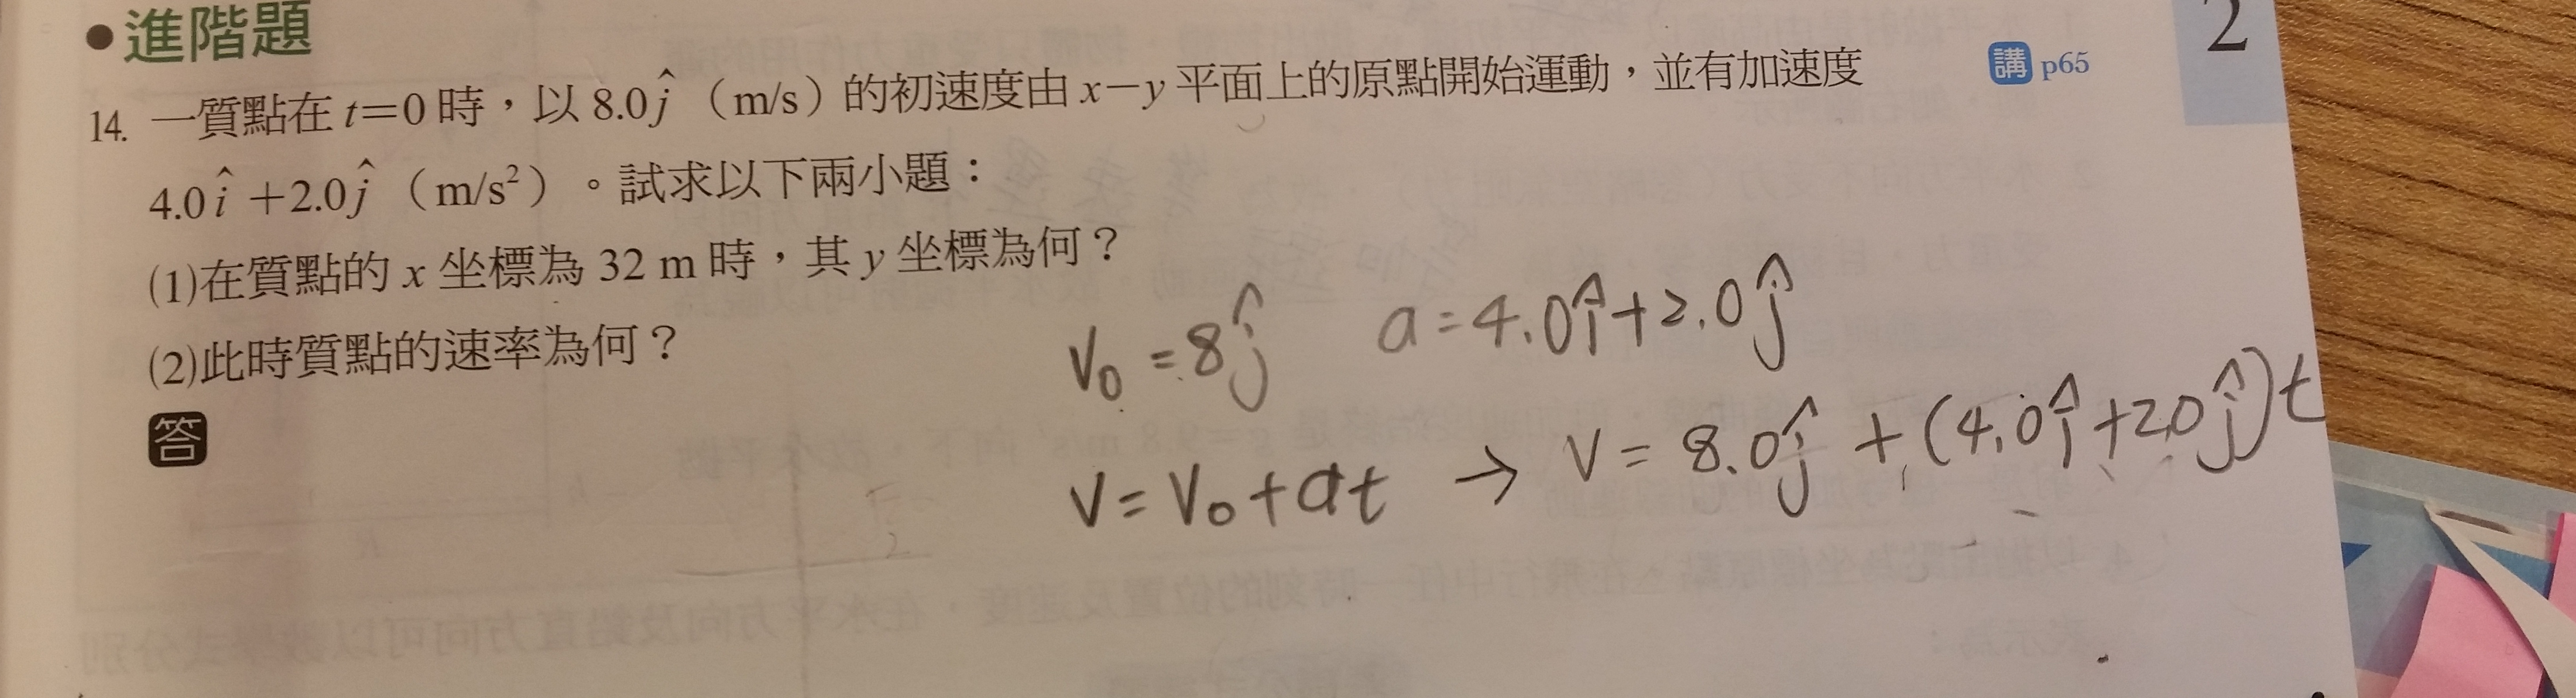 ●進階題
2
14. 一質點在 t=0 時，以 8.0ĵ（m/s）的初速度由 x－y 平面上的原點開始運動，並有加速度
講 p65
4.0î+2.0ĵ（m/s²）。試求以下兩小題：
(1)在質點的 x 坐標為 32 m 時，其 y 坐標為何？
(2)此時質點的速率為何？
答
V₀=8ĵ a=4.0î+2.0ĵ
V=V₀+at → V=8.0ĵ+(4.0î+2.0ĵ)t